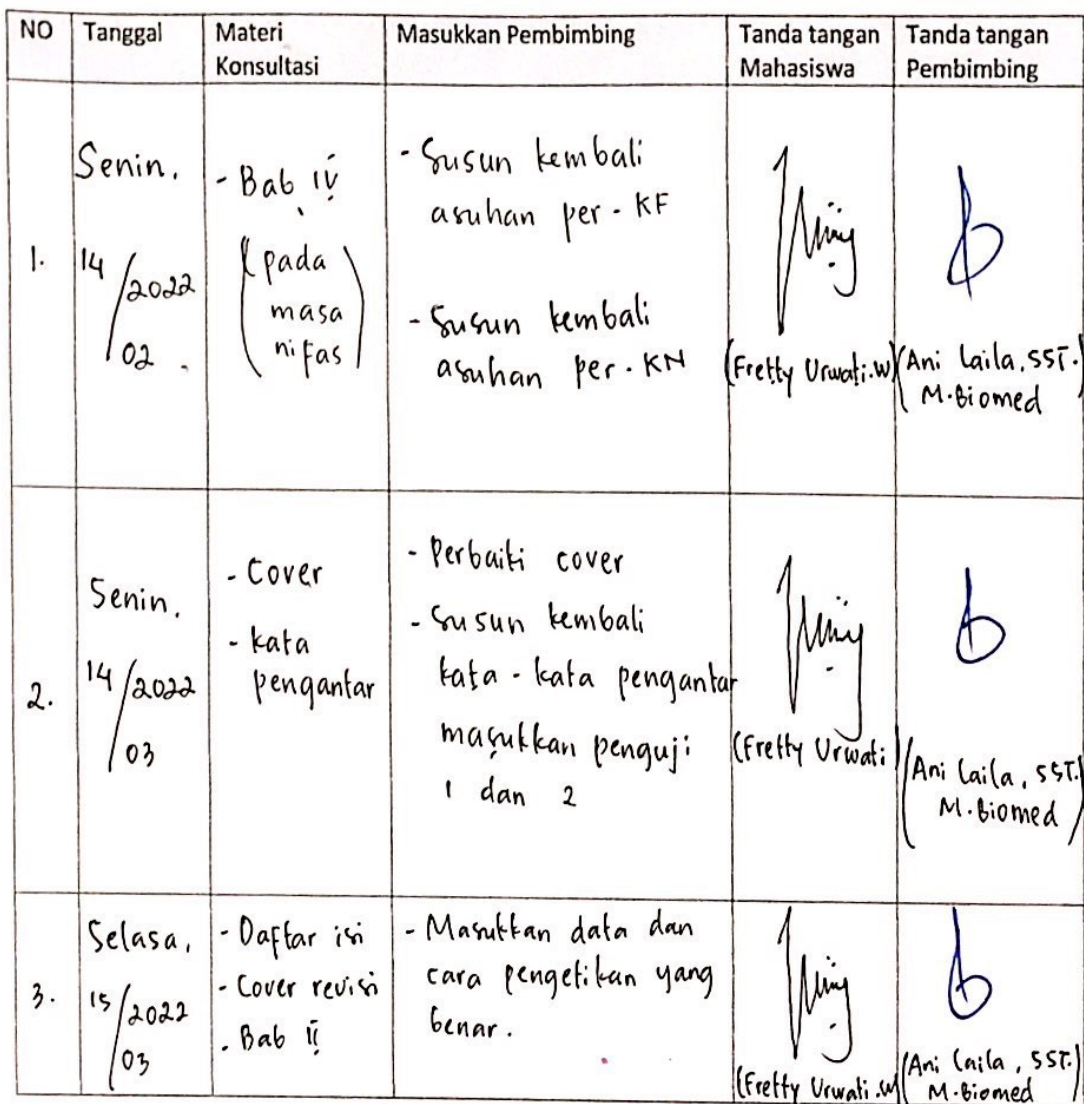 NO Tanggal Materi Konsultasi Masukkan Pembimbing Tanda tangan Mahasiswa Tanda tangan Pembimbing
1.
Senin,
14/02/2022.
- Bab IV
(pada
masa
nifas)
- Susun kembali
asuhan per-KF
- Susun kembali
asuhan per-KN
(Fretty Urwati.W)
(Ani Laila, SST.
M.Biomed)
2.
Senin,
14/03/2022
- Cover
- kata
pengantar
- Perbaiki cover
- Susun kembali
kata-kata pengantar
masukkan penguji
1 dan 2
(Fretty Urwati
(Ani Laila, SST.
M.Biomed)
3.
Selasa,
15/03/2022
- Daftar isi
- Cover revisi
- Bab II
- Masukkan data dan
cara pengetikan yang
benar.
(Fretty Urwati.W
(Ani Laila, SST.
M.Biomed)